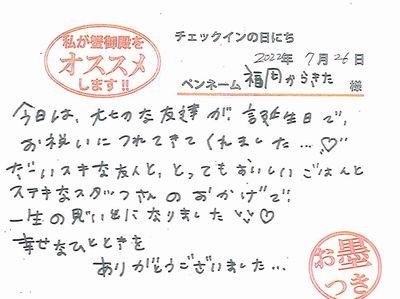 私が蟹御殿を
オススメ
します!!
チェックインの日にち
2022年 7月 26日
ペンネーム 福岡からきた 様
今日は、大切な友達が、誕生日で、
お祝いにつれてきてくれました…♡
だいスキな友人と、とってもおいしいごはんと
ステキなスタッフさんのおかげで
一生の思い出になりました ♡
幸せなひとときを
ありがとうございました…
お墨
つき